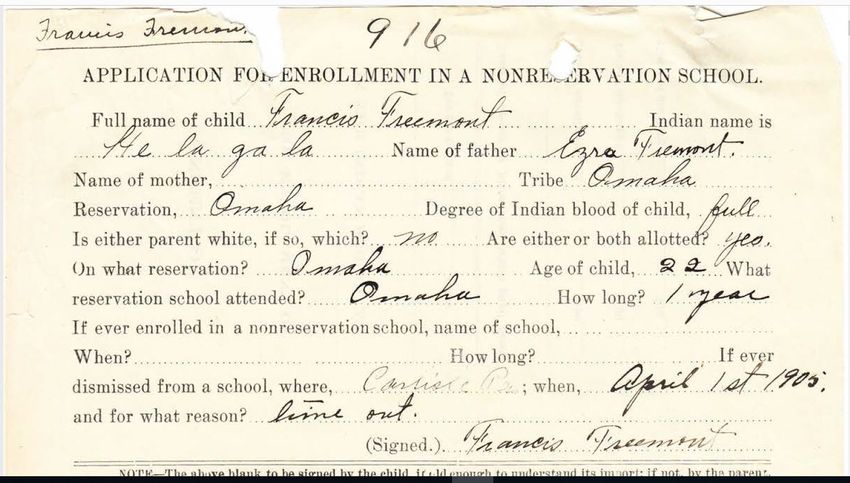 Francis Fremon.
916
APPLICATION FOR ENROLLMENT IN A NONRESERVATION SCHOOL.
Full name of child Francis Freemont Indian name is
He la ga la Name of father Ezra Fremont.
Name of mother, Tribe Omaha
Reservation, Omaha Degree of Indian blood of child, full
Is either parent white, if so, which? no Are either or both allotted? yes.
On what reservation? Omaha Age of child, 22 What
reservation school attended? Omaha How long? 1 year
If ever enrolled in a nonreservation school, name of school,
When? How long? If ever
dismissed from a school, where, Carlisle Pa; when, April 1st 1905.
and for what reason? time out.
(Signed.) Francis Freemont
NOTE—The above blank to be signed by the child, if old enough to understand its import; if not, by the parent,